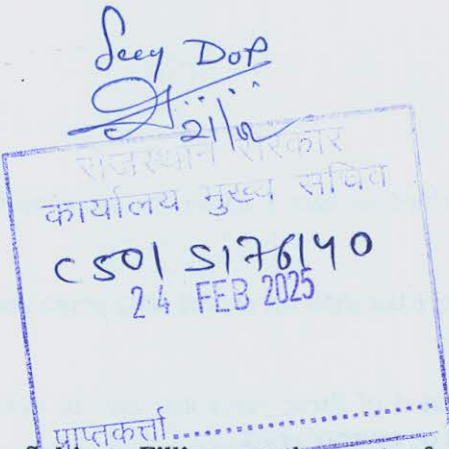 Secy DOP
21/2
राजस्थान सरकार
कार्यालय मुख्य सचिव
CSO/S176140
24 FEB 2025
प्राप्तकर्त्ता